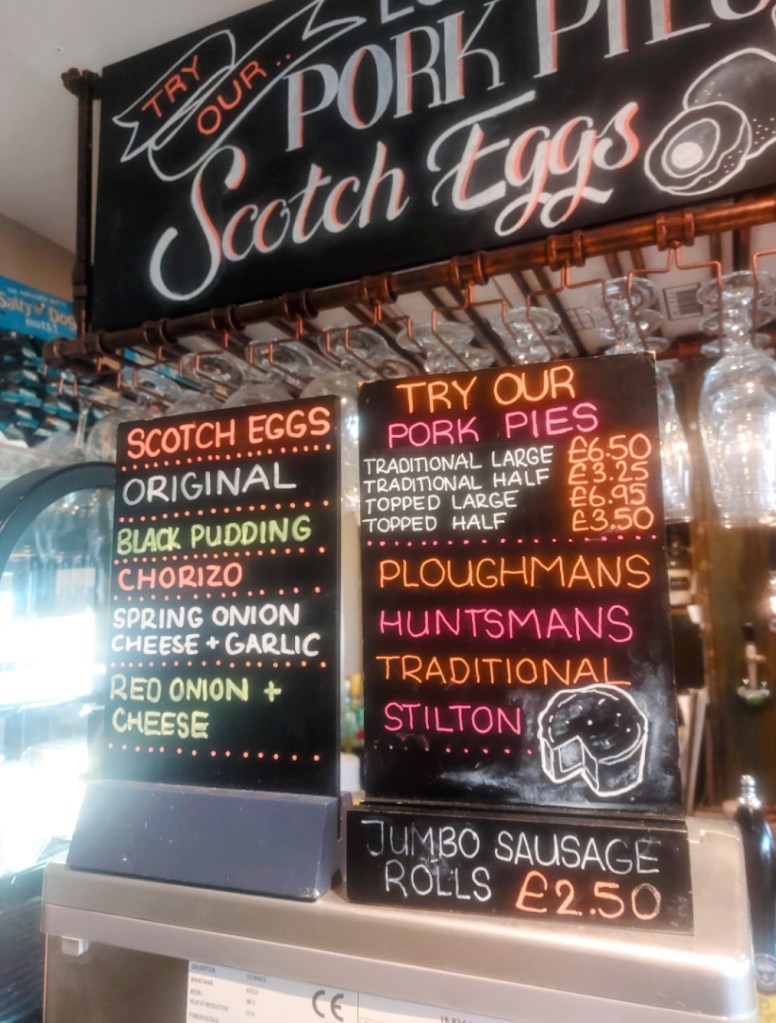 TRY
OUR..
PORK PIES
Scotch Eggs
Salty Dog
nuts!
SCOTCH EGGS
ORIGINAL
BLACK PUDDING
CHORIZO
SPRING ONION
CHEESE + GARLIC
RED ONION +
CHEESE
TRY OUR
PORK PIES
TRADITIONAL LARGE £6.50
TRADITIONAL HALF £3.25
TOPPED LARGE £6.95
TOPPED HALF £3.50
PLOUGHMANS
HUNTSMANS
TRADITIONAL
STILTON
JUMBO SAUSAGE
ROLLS £2.50
CE